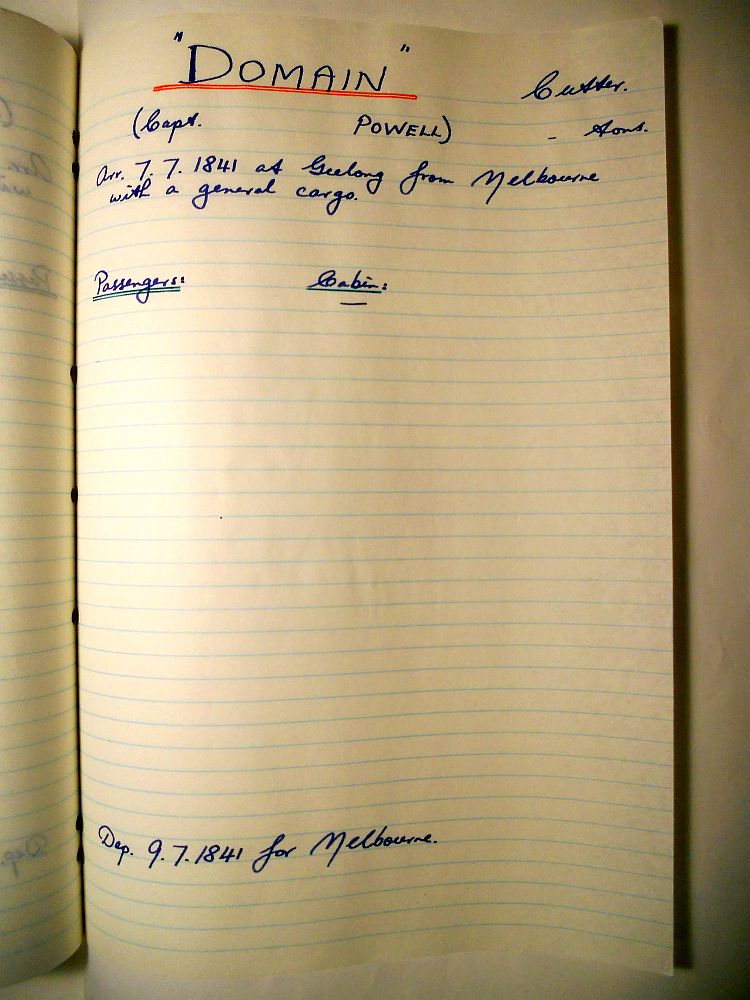 "DOMAIN"
Cutter.
(Capt. POWELL) - tons.
Arr. 7.7.1841 at Geelong from Melbourne
with a general cargo.
Passengers: Cabin:
—
Dep. 9.7.1841 for Melbourne.